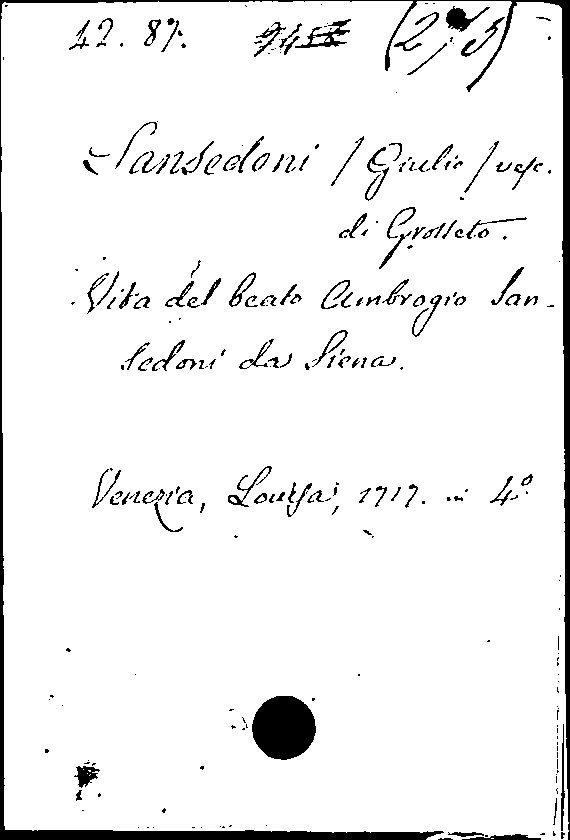 42. 87.
Sansedoni / Giulio / vesc.
di Grosseto.
Vita del beato Ambrogio San-
sedoni da Siena.
Venezia, Louisa, 1717. in 4º